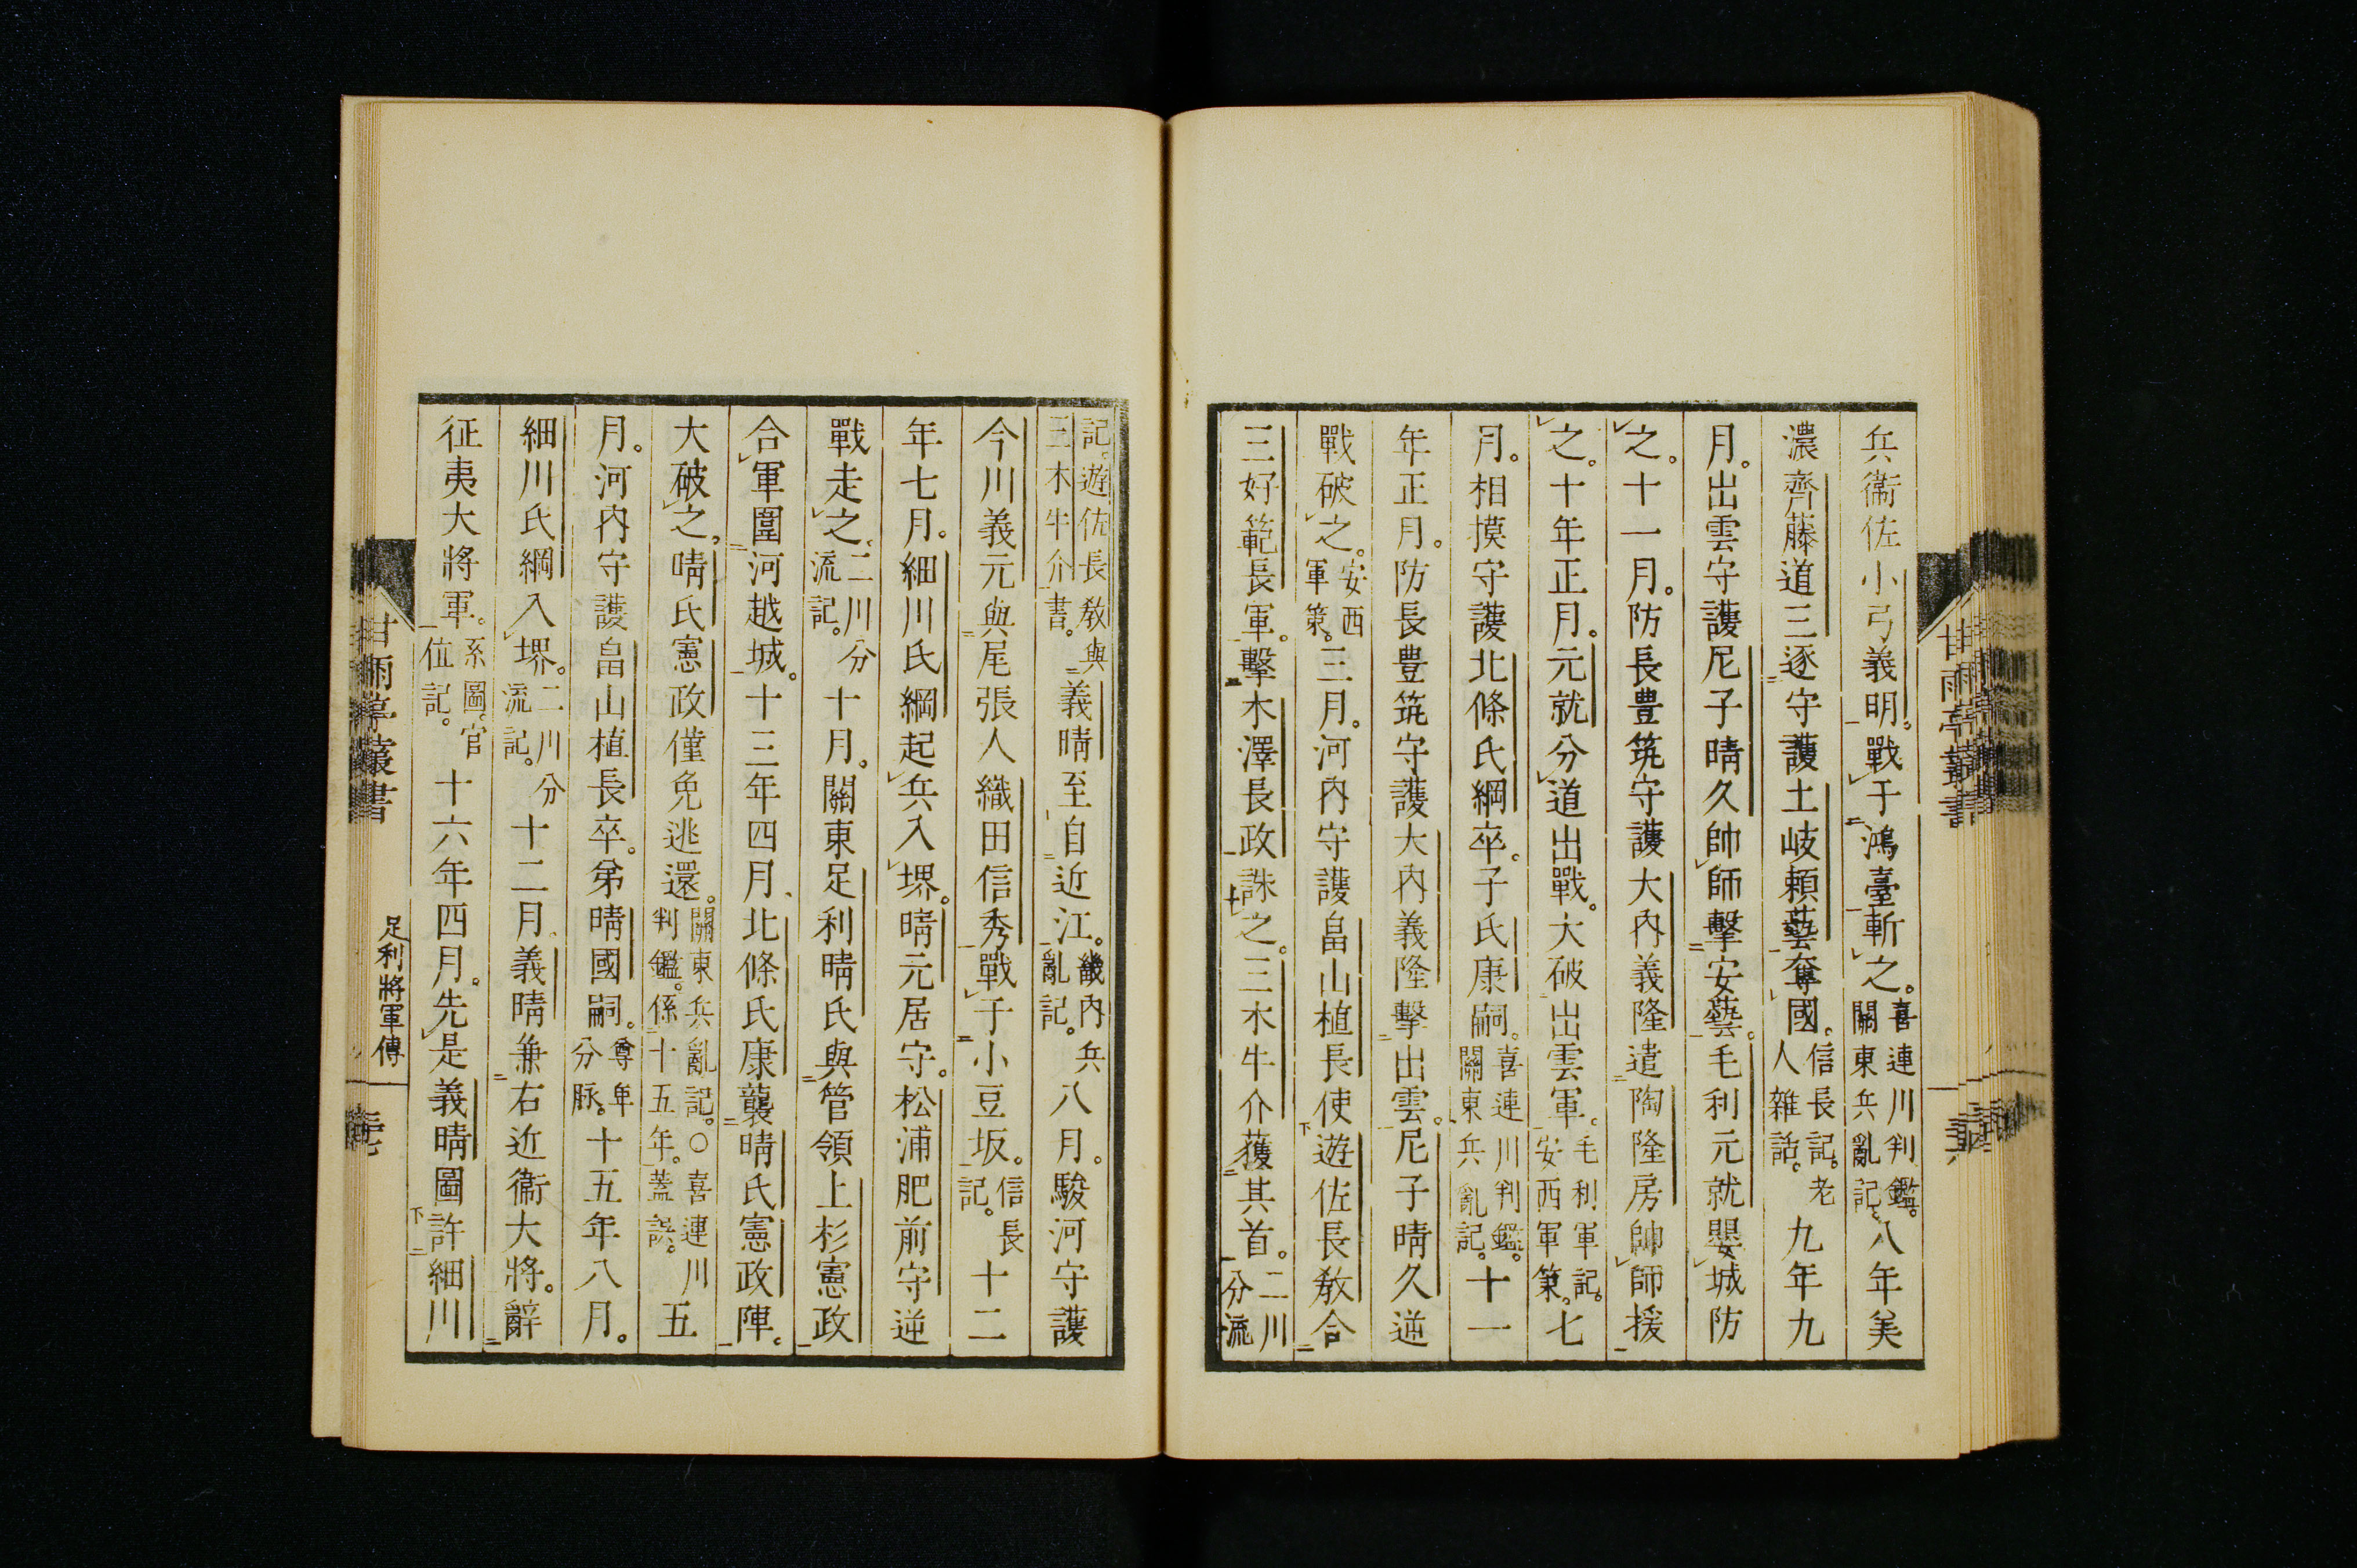 兵衞佐小弓義明。戰于鴻臺斬之。喜連川判鑑。關東兵亂記。八年美
濃齊藤道三逐守護土岐頼藝奪國。信長記。老人雜話。九年九
月。出雲守護尼子晴久帥師擊安藝。毛利元就嬰城防
之。十一月。防長豊筑守護大內義隆遣陶隆房帥師援
之。十年正月。元就分道出戰。大破出雲軍。毛利軍記。安西軍策。七
月。相摸守護北條氏綱卒。子氏康嗣。喜連川判鑑。關東兵亂記。十一
年正月。防長豊筑守護大內義隆擊出雲。尼子晴久逆
戰破之。安西軍策。三月。河內守護畠山植長使遊佐長敎合
三好範長軍。擊木澤長政誅之。三木牛介獲其首。二川分流
記。遊佐長敎與三木牛介書。義晴至自近江。畿內兵亂記。八月。駿河守護
今川義元與尾張人織田信秀戰于小豆坂。信長記。十二
年七月。細川氏綱起兵入堺。晴元居守。松浦肥前守逆
戰走之。二川分流記。十月。關東足利晴氏與管領上杉憲政
合軍圍河越城。十三年四月、北條氏康襲晴氏憲政陣。
大破之、晴氏憲政僅免逃還。關東兵亂記。○喜連川判鑑。係十五年。蓋誤。五
月。河內守護畠山植長卒。弟晴國嗣。尊卑分脉。十五年八月。
細川氏綱入堺。二川分流記。十二月、義晴兼右近衞大將。辭
征夷大將軍。系圖。官位記。十六年四月。先是義晴圖許細川
甘雨亭叢書
足利將軍傳
甘雨亭叢書